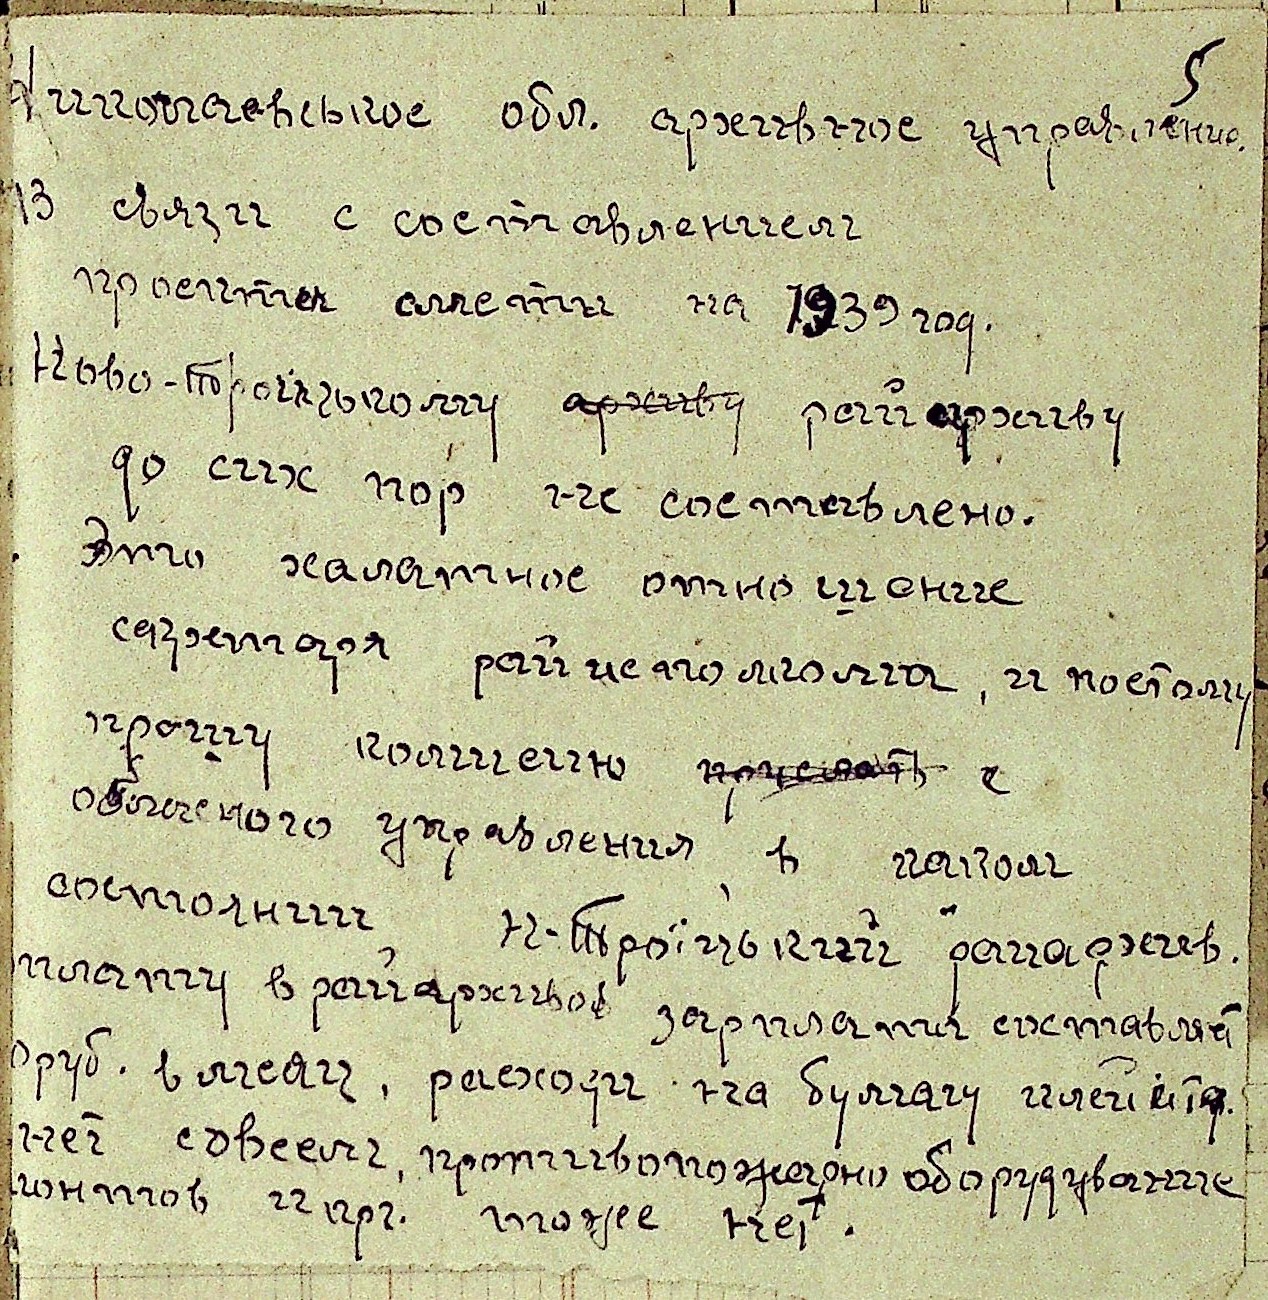 5
Николаевское обл. архивное управление.
В связи с составлением
проектек сметы на 1939 год.
Ново-Троицькому архиву райархиву
до сих пор не составлено.
Это халатное отношение
секретаря райисполкома, и поетому
прошу комисию прислать с
областного управления, в каком
состоянии Н-Троїцький райархив.
плату в райархивов зарплати составляет
0 руб. в месяц, расходы на бумагу клей и т.д.
нет совсем, противопожарно оборудувание
монтов и пр. тоже нет.